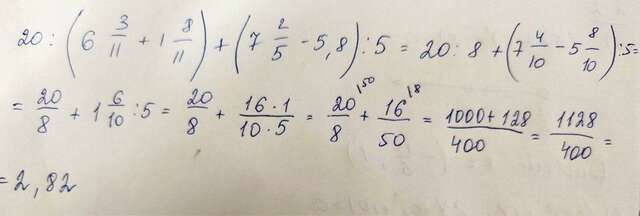 20 : (6 3/11 + 1 8/11) + (7 2/5 - 5,8) : 5 = 20 : 8 + (7 4/10 - 5 8/10) : 5 =
= 20/8 + 1 6/10 : 5 = 20/8 + 16·1/10·5 = 20/8 \50 + 16/50 \8 = 1000+128/400 = 1128/400 =
= 2,82